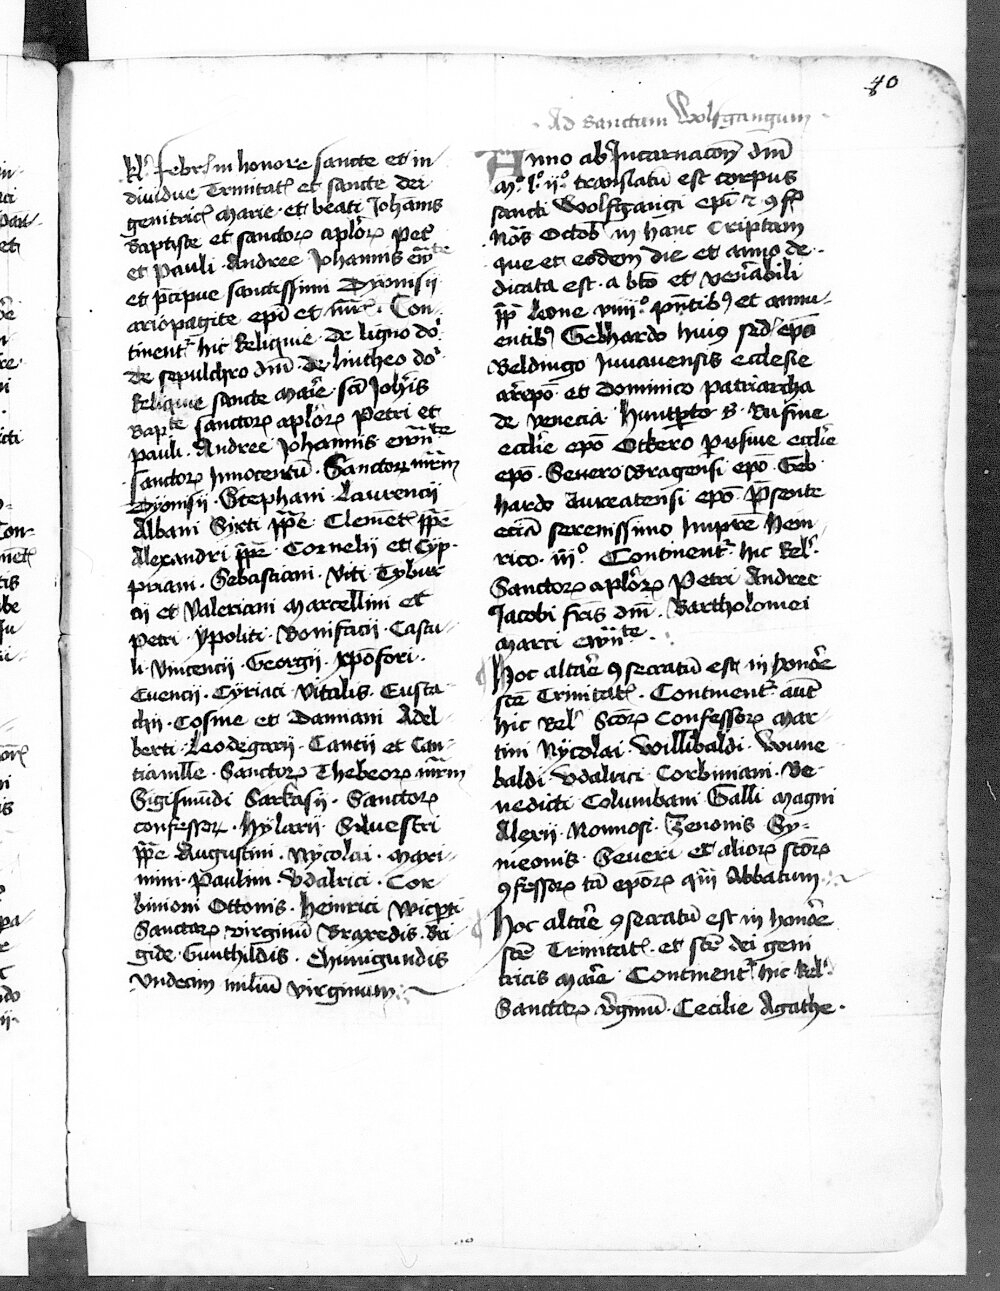 40
Ad Sanctum Wolfgangum
kl' febr' in honore sancte et in
diuidue Trinitat' et sancte dei
genitric' Marie et beati Johānis
Baptiste et sanctoꝝ apl'oꝝ Pet'
et Pauli Andree Johannis ew̄te
et p̄cipue sanctissimi Dyonisii
ariopagite ep̄i et m̄r̄s. Con
tinent' hic Reliquie. De ligno dō
De sepulchro dn̄i. de lintheo dō
Reliquie sancte Marie scī Joh'is
Bapte sanctoꝝ apl'oꝝ Petri et
pauli. Andree Johannis ewn̄te
sanctoꝝ Innocentū. Sanctoꝝ mr̄m
Dyonisii. Stephani. Laurencii
Albani Sixti pp̄e Clemēt' pp̄e
Alexandri pp̄e. Cornelii et Cyp
priani. Sebastiani. Viti Tybur
cii et Valeriani Marcellini et
Petri. ypoliti. Bonifacii. Castu
li Vincencii. Georgii. xp̄ofori.
Euencii. Cyriaci Vitalis. Eusta
chii. Cosme et Damiani Adel
berti. Leodegarii. Cantii et Can
tianille. Sanctoꝝ Thebeoꝝ mr̄m
Sigismūdi Sarkasii. Sanctoꝝ
confessoꝝ. Hylarii Siluestri
pp̄e Augustini. Nycolai. Maxi
mini. Paulini Vdalrici. Cor
biniani Ottonis. Heinrici Wicp̄ti
Sanctaꝝ virginū Braxedis. Bri
gide. Gunthildis. Chunigundis
Vndecim miliū virginum.
Anno ab Incarnacōn' dn̄i
M.º l.º ij.º translatū est corpus
sancti Wolfgangi ep̄i ⁊ ꝯf'
Nōs Octob' in hanc Criptam
que et eodem die et anno de
dicata est. a bt̄o et ven̄abili
pp̄ Leone viiij.º pn̄tibꝫ et annu
entibꝫ Gebhardo huius sed' ep̄o
Beldingo Juuauensis ecclesie
ar̄epō et Dominico patriarcha
de venecia. Huntp̄to B. Rusine
eccl'ie ep̄o Otkero Perusiue eccl'ie
ep̄o. Seuero Bragensi ep̄o. Geb
hardo Aureatensi ep̄o. P̄sente
eciā serenissimo Imp̄re Hein
rico. iij.º Continent' hic Rel'.
Sanctoꝝ apl'oꝝ Petri Andree
Jacobi fr̄is dn̄i. Bartholomei
Marci ewn̄te.
Hoc altare ꝯsecratū est in honōre
scē Trinitat'. Continent' aut̄
hic Rel' Scōꝝ Confessoꝝ Mar
tini Nycolai Willibaldi. Wune
baldi Vdalrici Corbiniani. Be
nedicti Columbani Galli Magni
Alexii. Nonnosi. Zenonis Sy
meonis. Seueri et alioꝝ scōꝝ
ꝯfessoꝝ tā ep̄oꝝ qm̄ Abbatum.
Hoc altare ꝯsecratū est in honōre
scē Trinitat'. et scē dei geni
tricis Marie. Continent' hic Rel'.
Sanctaꝝ v̄ginū. Cecilie Agathe.